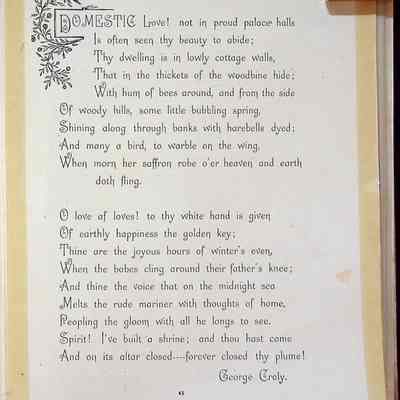 DOMESTIC Love! not in proud palace halls
Is often seen thy beauty to abide;
Thy dwelling is in lowly cottage walls,
That in the thickets of the woodbine hide;
With hum of bees around, and from the side
Of woody hills, some little bubbling spring,
Shining along through banks with harebells dyed;
And many a bird, to warble on the wing,
When morn her saffron robe o'er heaven and earth
doth fling.
O love of loves! to thy white hand is given
Of earthly happiness the golden key;
Thine are the joyous hours of winter's even,
When the babes cling around their father's knee;
And thine the voice that on the midnight sea
Melts the rude mariner with thoughts of home,
Peopling the gloom with all he longs to see.
Spirit! I've built a shrine; and thou hast come
And on its altar closed---forever closed thy plume!
George Croly.